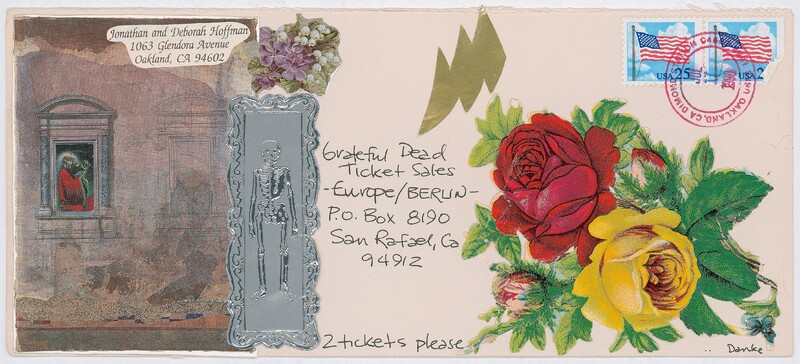 Jonathan and Deborah Hoffman
1063 Glendora Avenue
Oakland, CA 94602
USA 25
USA 2
OAKLAND, CA DIMOND
Grateful Dead
Ticket Sales
-Europe/BERLIN-
P.O. Box 8190
San Rafael, Ca
94912
2 tickets please
Danke